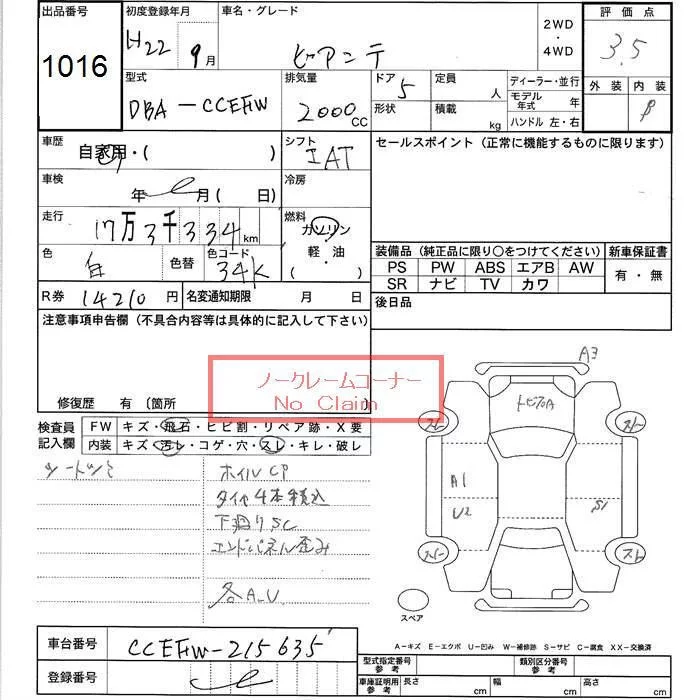 出品番号
1016
初度登録年月
H22 9月
車名・グレード
ビアンテ
2WD
・
4WD
評価点
3.5
外装 内装
β
型式
DBA-CCEFW
排気量
2000 CC
ドア 5
形状
定員 人
積載 kg
ディーラー・並行
モデル年式 年
ハンドル 左・右
車歴
自家用・( )
シフト
IAT
車検
年 月( 日)
冷房
走行
17万3千334km
燃料
ガソリン
軽・油
( )
色
白
色替
色コード
34K
R券 14210円
名変通知期限 月 日
セールスポイント(正常に機能するものに限ります)
装備品(純正品に限り〇をつけてください)
PS PW ABS エアB AW
SR ナビ TV カワ
新車保証書
有・無
後日品
注意事項申告欄(不具合内容等は具体的に記入して下さい)
修復歴 有 〔箇所
ノークレームコーナー
No Claim
検査員記入欄
FW キズ・飛石・ヒビ割・リペア跡・X要
内装 キズ・汚レ・コゲ・穴・スレ・キレ・破レ
ホイルCP
タイヤ4本積込
下廻りSC
エンドパネル歪み
各A.U
A3
トビアA
A1
U2
S1
スペア
A-キズ E-エクボ U-凹み W-補修跡 S-サビ C-腐食 XX-交換済
車台番号
CCEFW-215635
登録番号
型式指定番号
参考
類別区分番号
参考
車庫証明用
参考
長さ cm 幅 cm 高さ cm